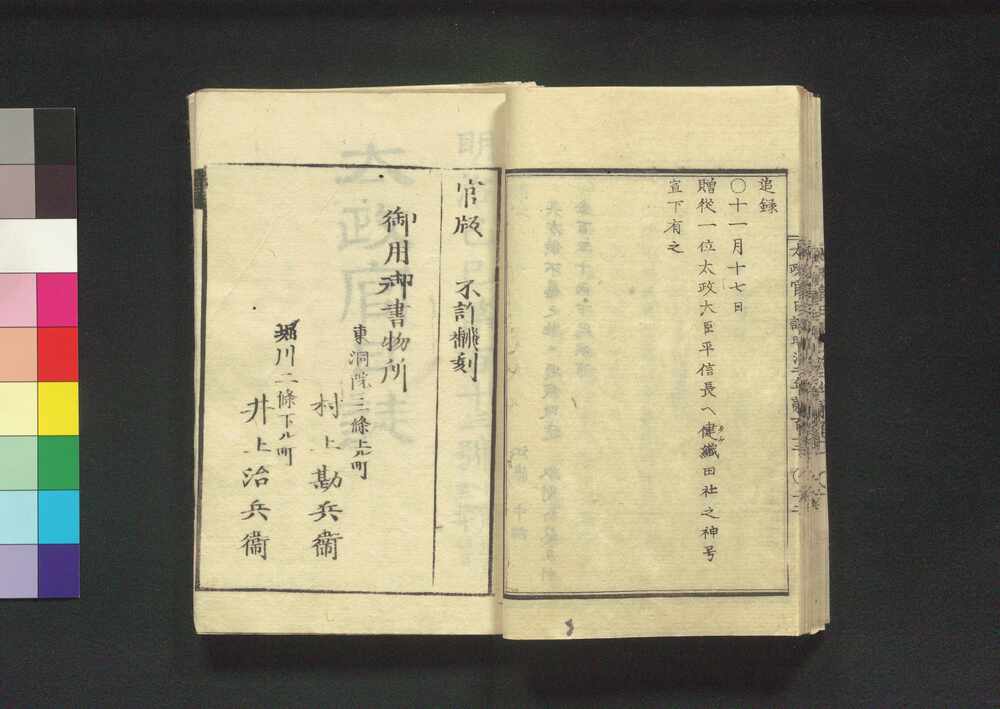 追録
〇十一月十七日
贈従一位太政大臣平信長ヘ健織田社之神号
宣下有之
官版 不許翻刻
御用御書物所
東洞院三條上ル町
村上勘兵衞
堀川二條下ル町
井上治兵衞